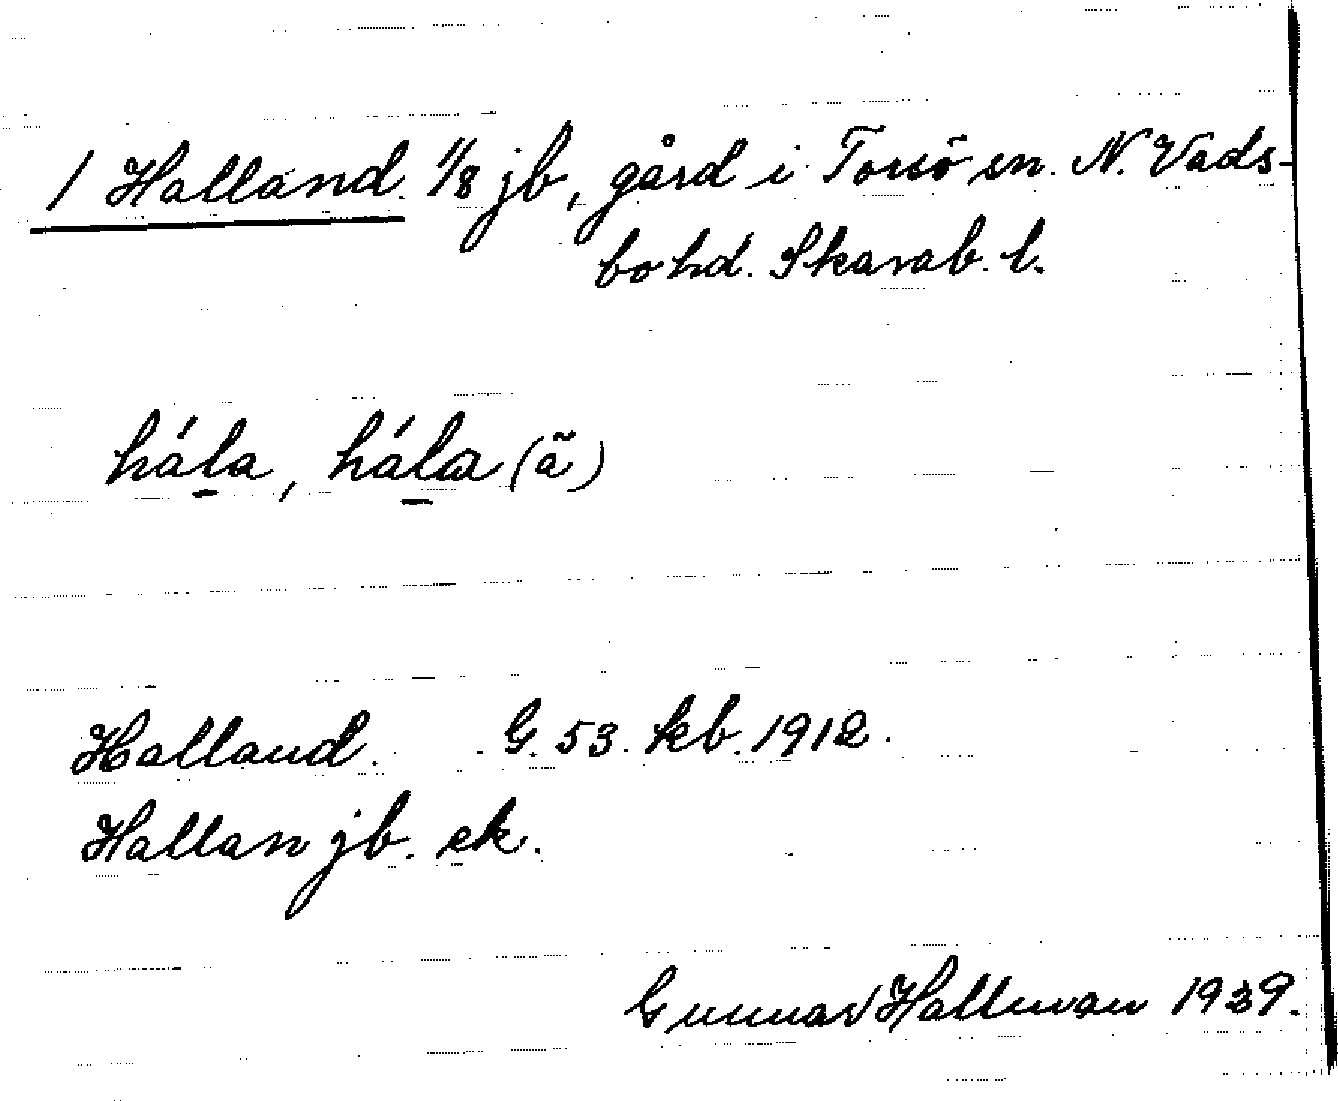 1 Halland 1/8 jb, gård i Torsö sn. N. Vads-
bo hd. Skarab. l.
hála, hála (ã)
Halland. G. 53. kb. 1912.
Hallan jb. ek.
Gunnar Hallman 1939.